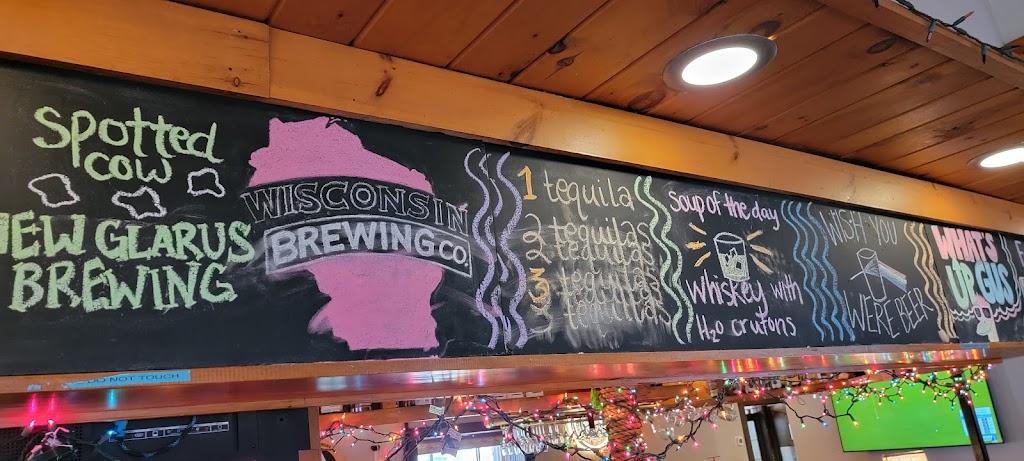 Spotted
Cow
NEW GLARUS
BREWING
WISCONSIN
BREWING CO.
1 tequila
2 tequilas
3 tequilas
Soup of the day
Whiskey with
H₂O crutons
WISH YOU
WERE BEER
WHAT'S
UP GUS
DO NOT TOUCH